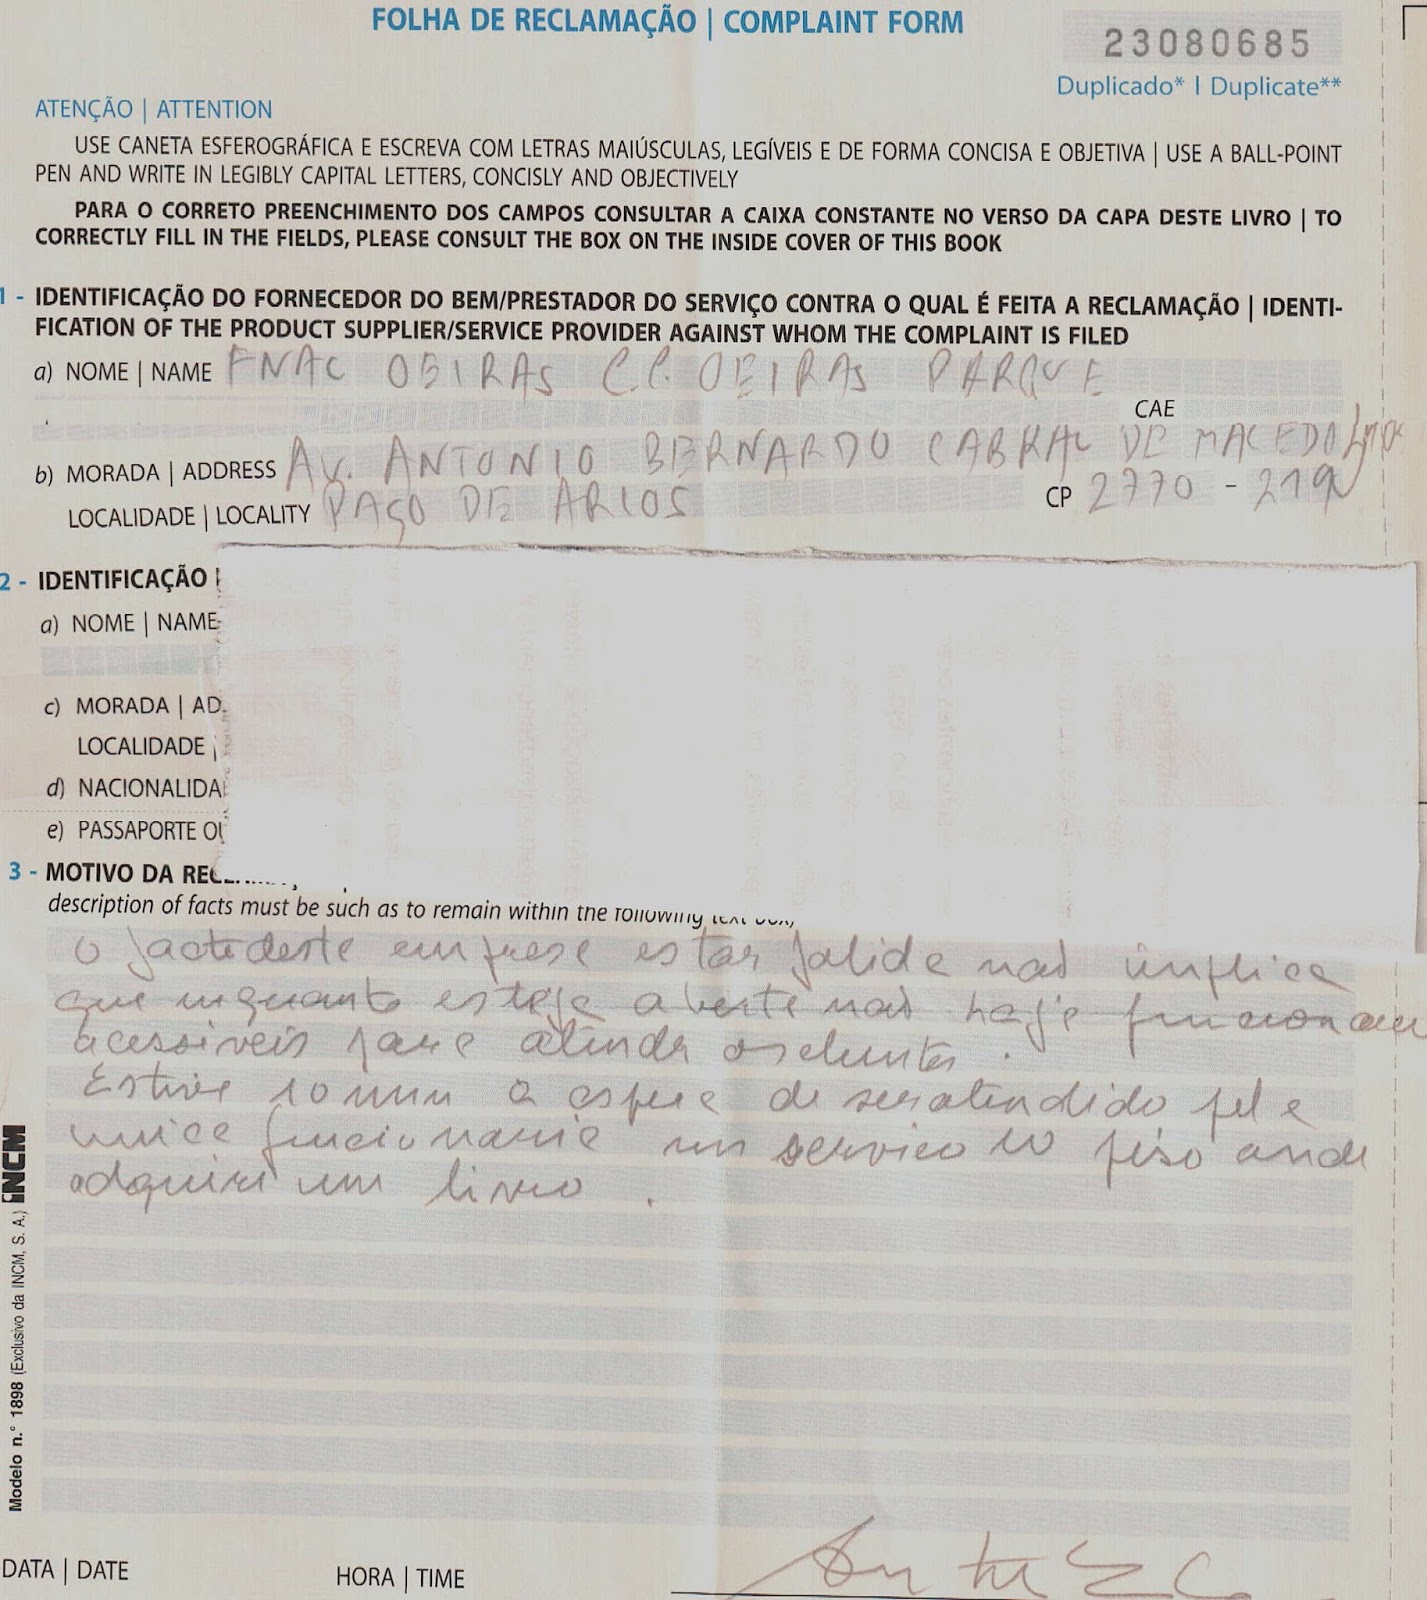 FOLHA DE RECLAMAÇÃO | COMPLAINT FORM
23080685
Duplicado* | Duplicate**
ATENÇÃO | ATTENTION
USE CANETA ESFEROGRÁFICA E ESCREVA COM LETRAS MAIÚSCULAS, LEGÍVEIS E DE FORMA CONCISA E OBJETIVA | USE A BALL-POINT
PEN AND WRITE IN LEGIBLY CAPITAL LETTERS, CONCISLY AND OBJECTIVELY
PARA O CORRETO PREENCHIMENTO DOS CAMPOS CONSULTAR A CAIXA CONSTANTE NO VERSO DA CAPA DESTE LIVRO | TO
CORRECTLY FILL IN THE FIELDS, PLEASE CONSULT THE BOX ON THE INSIDE COVER OF THIS BOOK
1 - IDENTIFICAÇÃO DO FORNECEDOR DO BEM/PRESTADOR DO SERVIÇO CONTRA O QUAL É FEITA A RECLAMAÇÃO | IDENTI-
FICATION OF THE PRODUCT SUPPLIER/SERVICE PROVIDER AGAINST WHOM THE COMPLAINT IS FILED
a) NOME | NAME FNAC OEIRAS C.C. OEIRAS PARQUE
CAE
b) MORADA | ADDRESS AV. ANTONIO BERNARDO CABRAL DE MACEDO
LOCALIDADE | LOCALITY PAÇO DE ARCOS CP 2770 - 219
2 - IDENTIFICAÇÃO
a) NOME | NAME
c) MORADA | AD
LOCALIDADE |
d) NACIONALIDA
e) PASSAPORTE OU
3 - MOTIVO DA REC
description of facts must be such as to remain within the following text box,
O facto deste empresa estar falida não implica
que enquanto esteja aberta não haja funcionarios
acessiveis para atender os clientes.
Estive 10 min a espera de ser atendido pela
unica funcionaria em serviço no piso onde
adquiri um livro.
Modelo n.° 1898 (Exclusivo da INCM, S. A.) INCM
DATA | DATE HORA | TIME